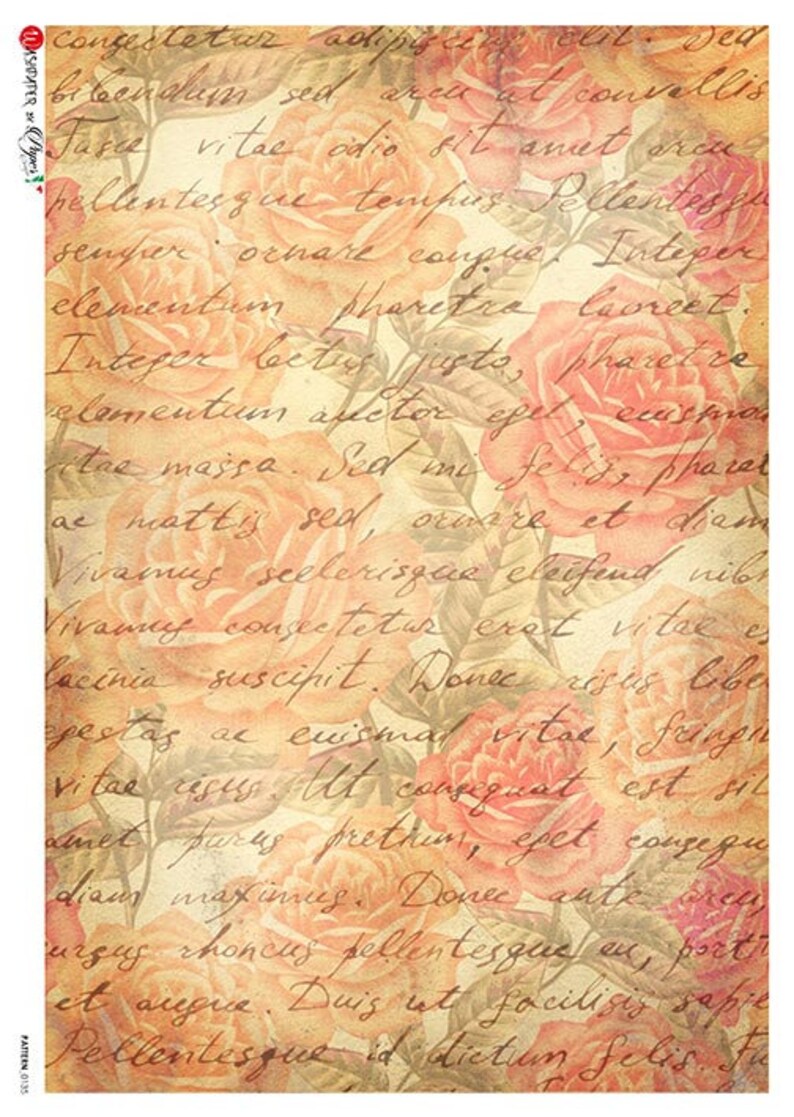 consectetur adipiscing elit. Sed
bibendum sed arcu ut convallis
Fusce vitae odio sit amet arcu
pellentesque tempus. Pellentesqu
semper ornare congue. Integer
elementum pharetra laoreet.
Integer lectus justo, pharetra
elementum auctor eget, euismo
vitae massa. Sed mi felis, pharet
ac mattis sed, ornare et diam
Vivamus scelerisque eleifend nibh
Vivamus consectetur erat vitae es
lacinia suscipit. Donec risus libe
egestas ac euismod vitae, fringil
vitae risus. Ut consequat est sit
amet purus pretium, eget consequ
diam maximus. Donec ante arcu,
cursus rhoncus pellentesque eu, portt
et augue. Duis ut facilisis sapie
Pellentesque id dictum felis. Fu
WASHIPAPER BY Paper's
PATTERN_0135